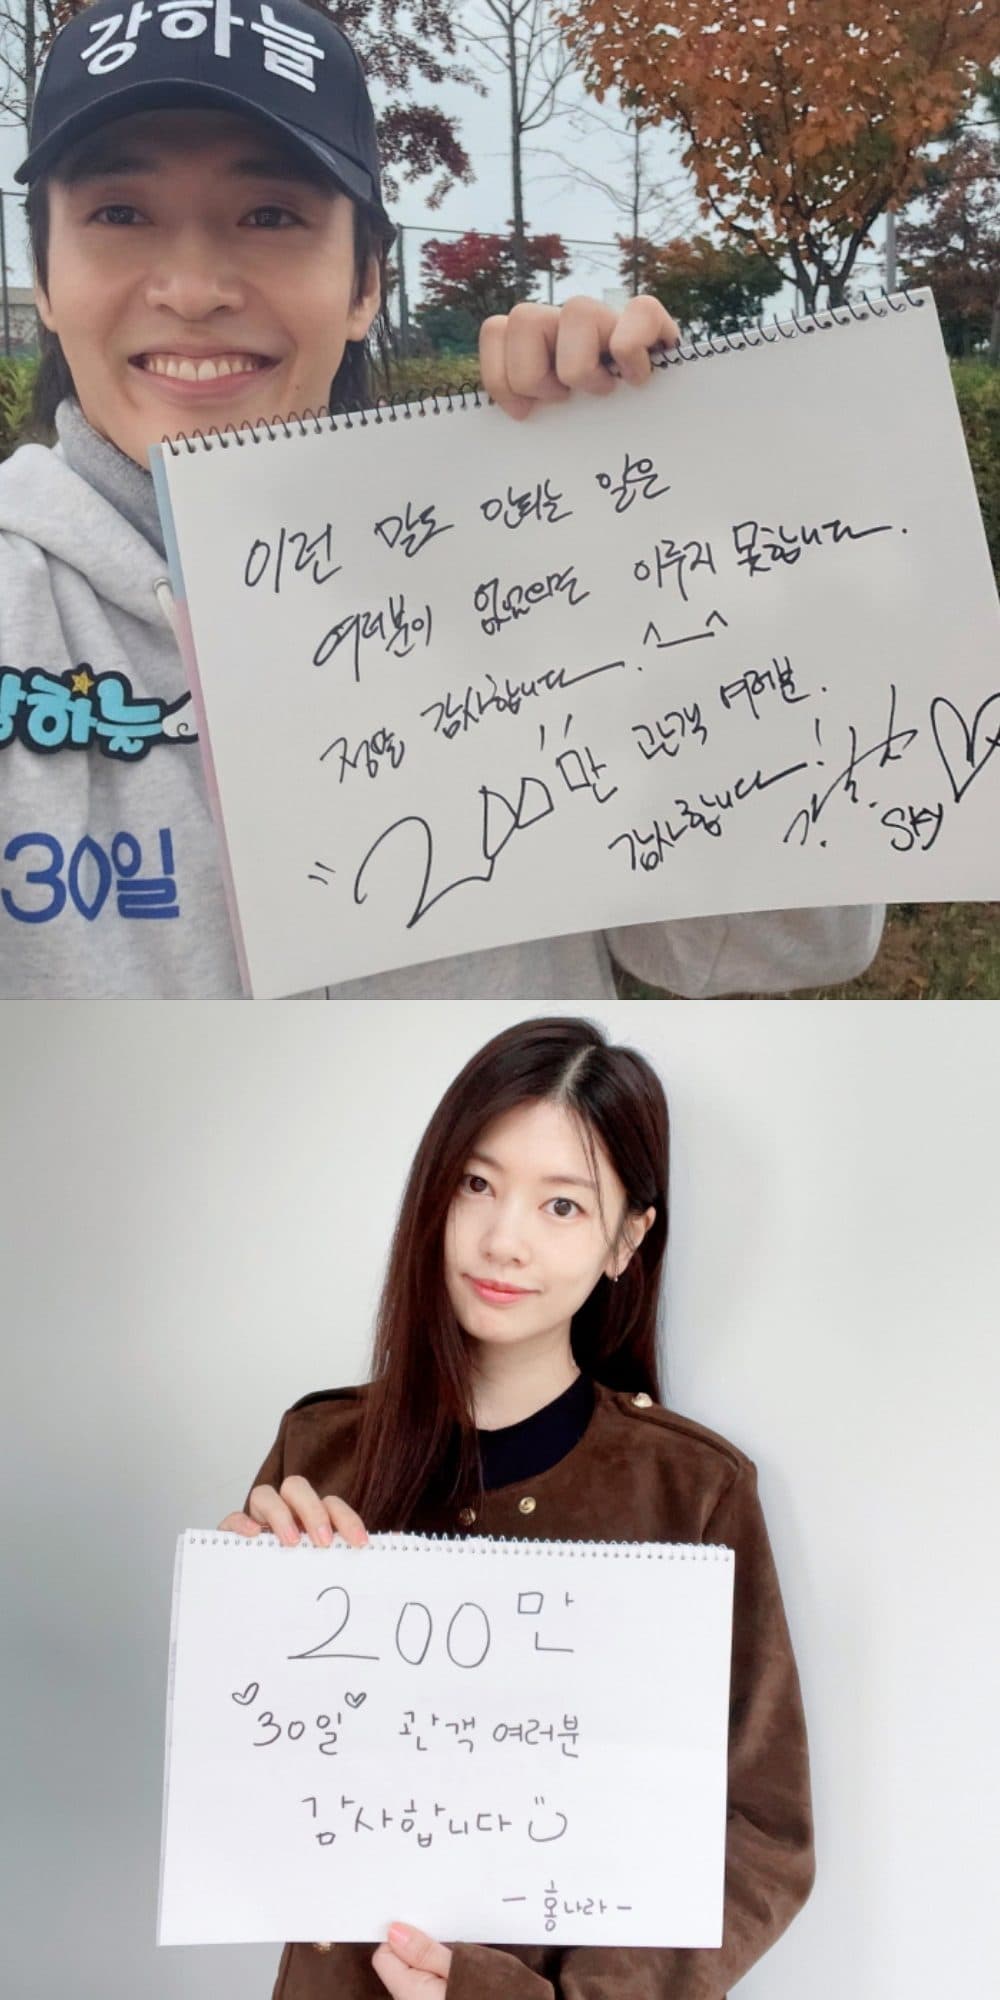 강하늘
이런 말도 안되는 일은
여러분이 없었으면 이루지 못합니다.
정말 감사합니다. ^_^
"200만" 관객 여러분.
감사합니다!
강하늘
Sky
강하늘
30일
200만
30일 관객 여러분
감사합니다
- 홍나라 -